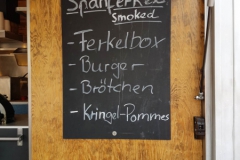 Spanferkel
Smoked
- Ferkelbox
- Burger
- Brötchen
- Kringel-Pommes